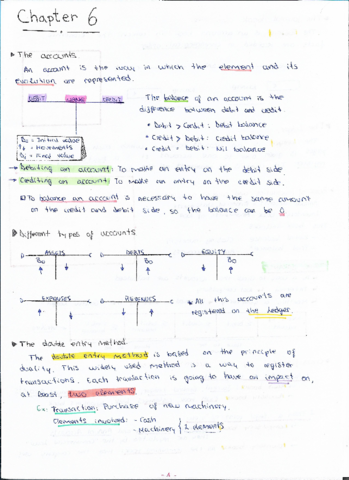 Chapter 6
The accounts
An account is the way in which the element and its
evolution are represented.
DEBIT NAME CREDIT
B0 = Initial value
= Movements
= Final value
The balance of an account is the
difference between debit and credit.
• Debit > Credit: Debit balance
• Credit > Debit: Credit balance
• Credit = Debit: Nil balance
→ Debiting an account: To make an entry on the debit side.
→ Crediting an account: To make an entry on the credit side.
To balance an account is necessary to have the same amount
on the credit and debit side, so the balance can be 0
Different types of accounts
ASSETS DEBTS EQUITY
B0 B0 B0
EXPENSES REVENUES
All this accounts are
registered on the ledger.
The double entry method
The double entry method is based on the principle of
duality. This widely used method is a way to register
transactions. Each transaction is going to have an impact on,
at least, two elements.
Ex: Transaction: Purchase of new machinery.
Elements involved: - Cash
- Machinery } 2 elements
- 1 -